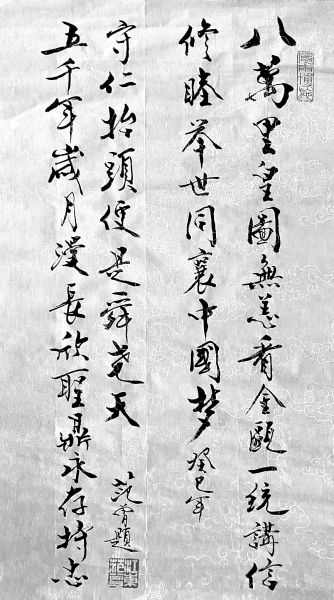 八萬里皇圖無恙看金甌一統講信
修睦举世同襄中國梦
癸巳年
五千年歲月漫長欣聖鼎永存持志
守仁抬頭便是舜堯天
范題